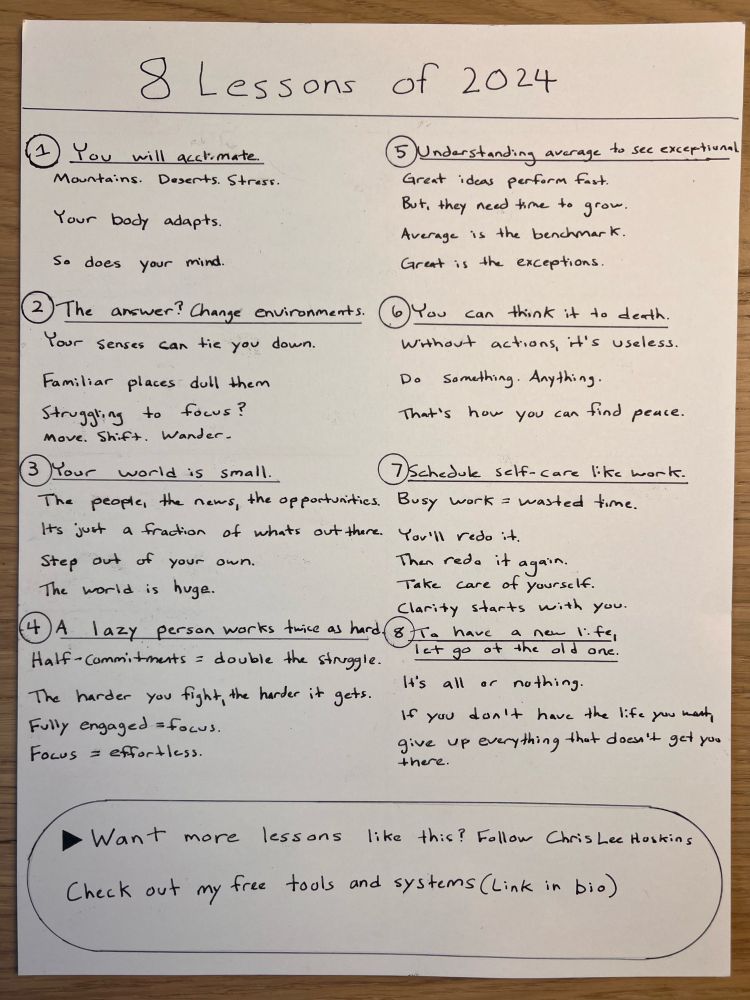 8 Lessons of 2024
1 You will acclimate.
Mountains. Deserts. Stress.
Your body adapts.
So does your mind.
2 The answer? Change environments.
Your senses can tie you down.
Familiar places dull them
Struggling to focus?
Move. Shift. Wander.
3 Your world is small.
The people, the news, the opportunities.
It's just a fraction of whats out there.
Step out of your own.
The world is huge.
4 A lazy person works twice as hard.
Half-commitments = double the struggle.
The harder you fight, the harder it gets.
Fully engaged = focus.
Focus = effortless.
5 Understanding average to see exceptional
Great ideas perform fast.
But, they need time to grow.
Average is the benchmark.
Great is the exceptions.
6 You can think it to death.
Without actions, it's useless.
Do something. Anything.
That's how you can find peace.
7 Schedule self-care like work.
Busy work = wasted time.
You'll redo it.
Then redo it again.
Take care of yourself.
Clarity starts with you.
8 To have a new life,
let go of the old one.
It's all or nothing.
If you don't have the life you want,
give up everything that doesn't get you
there.
▶ Want more lessons like this? Follow Chris Lee Hoskins
Check out my free tools and systems (Link in bio)